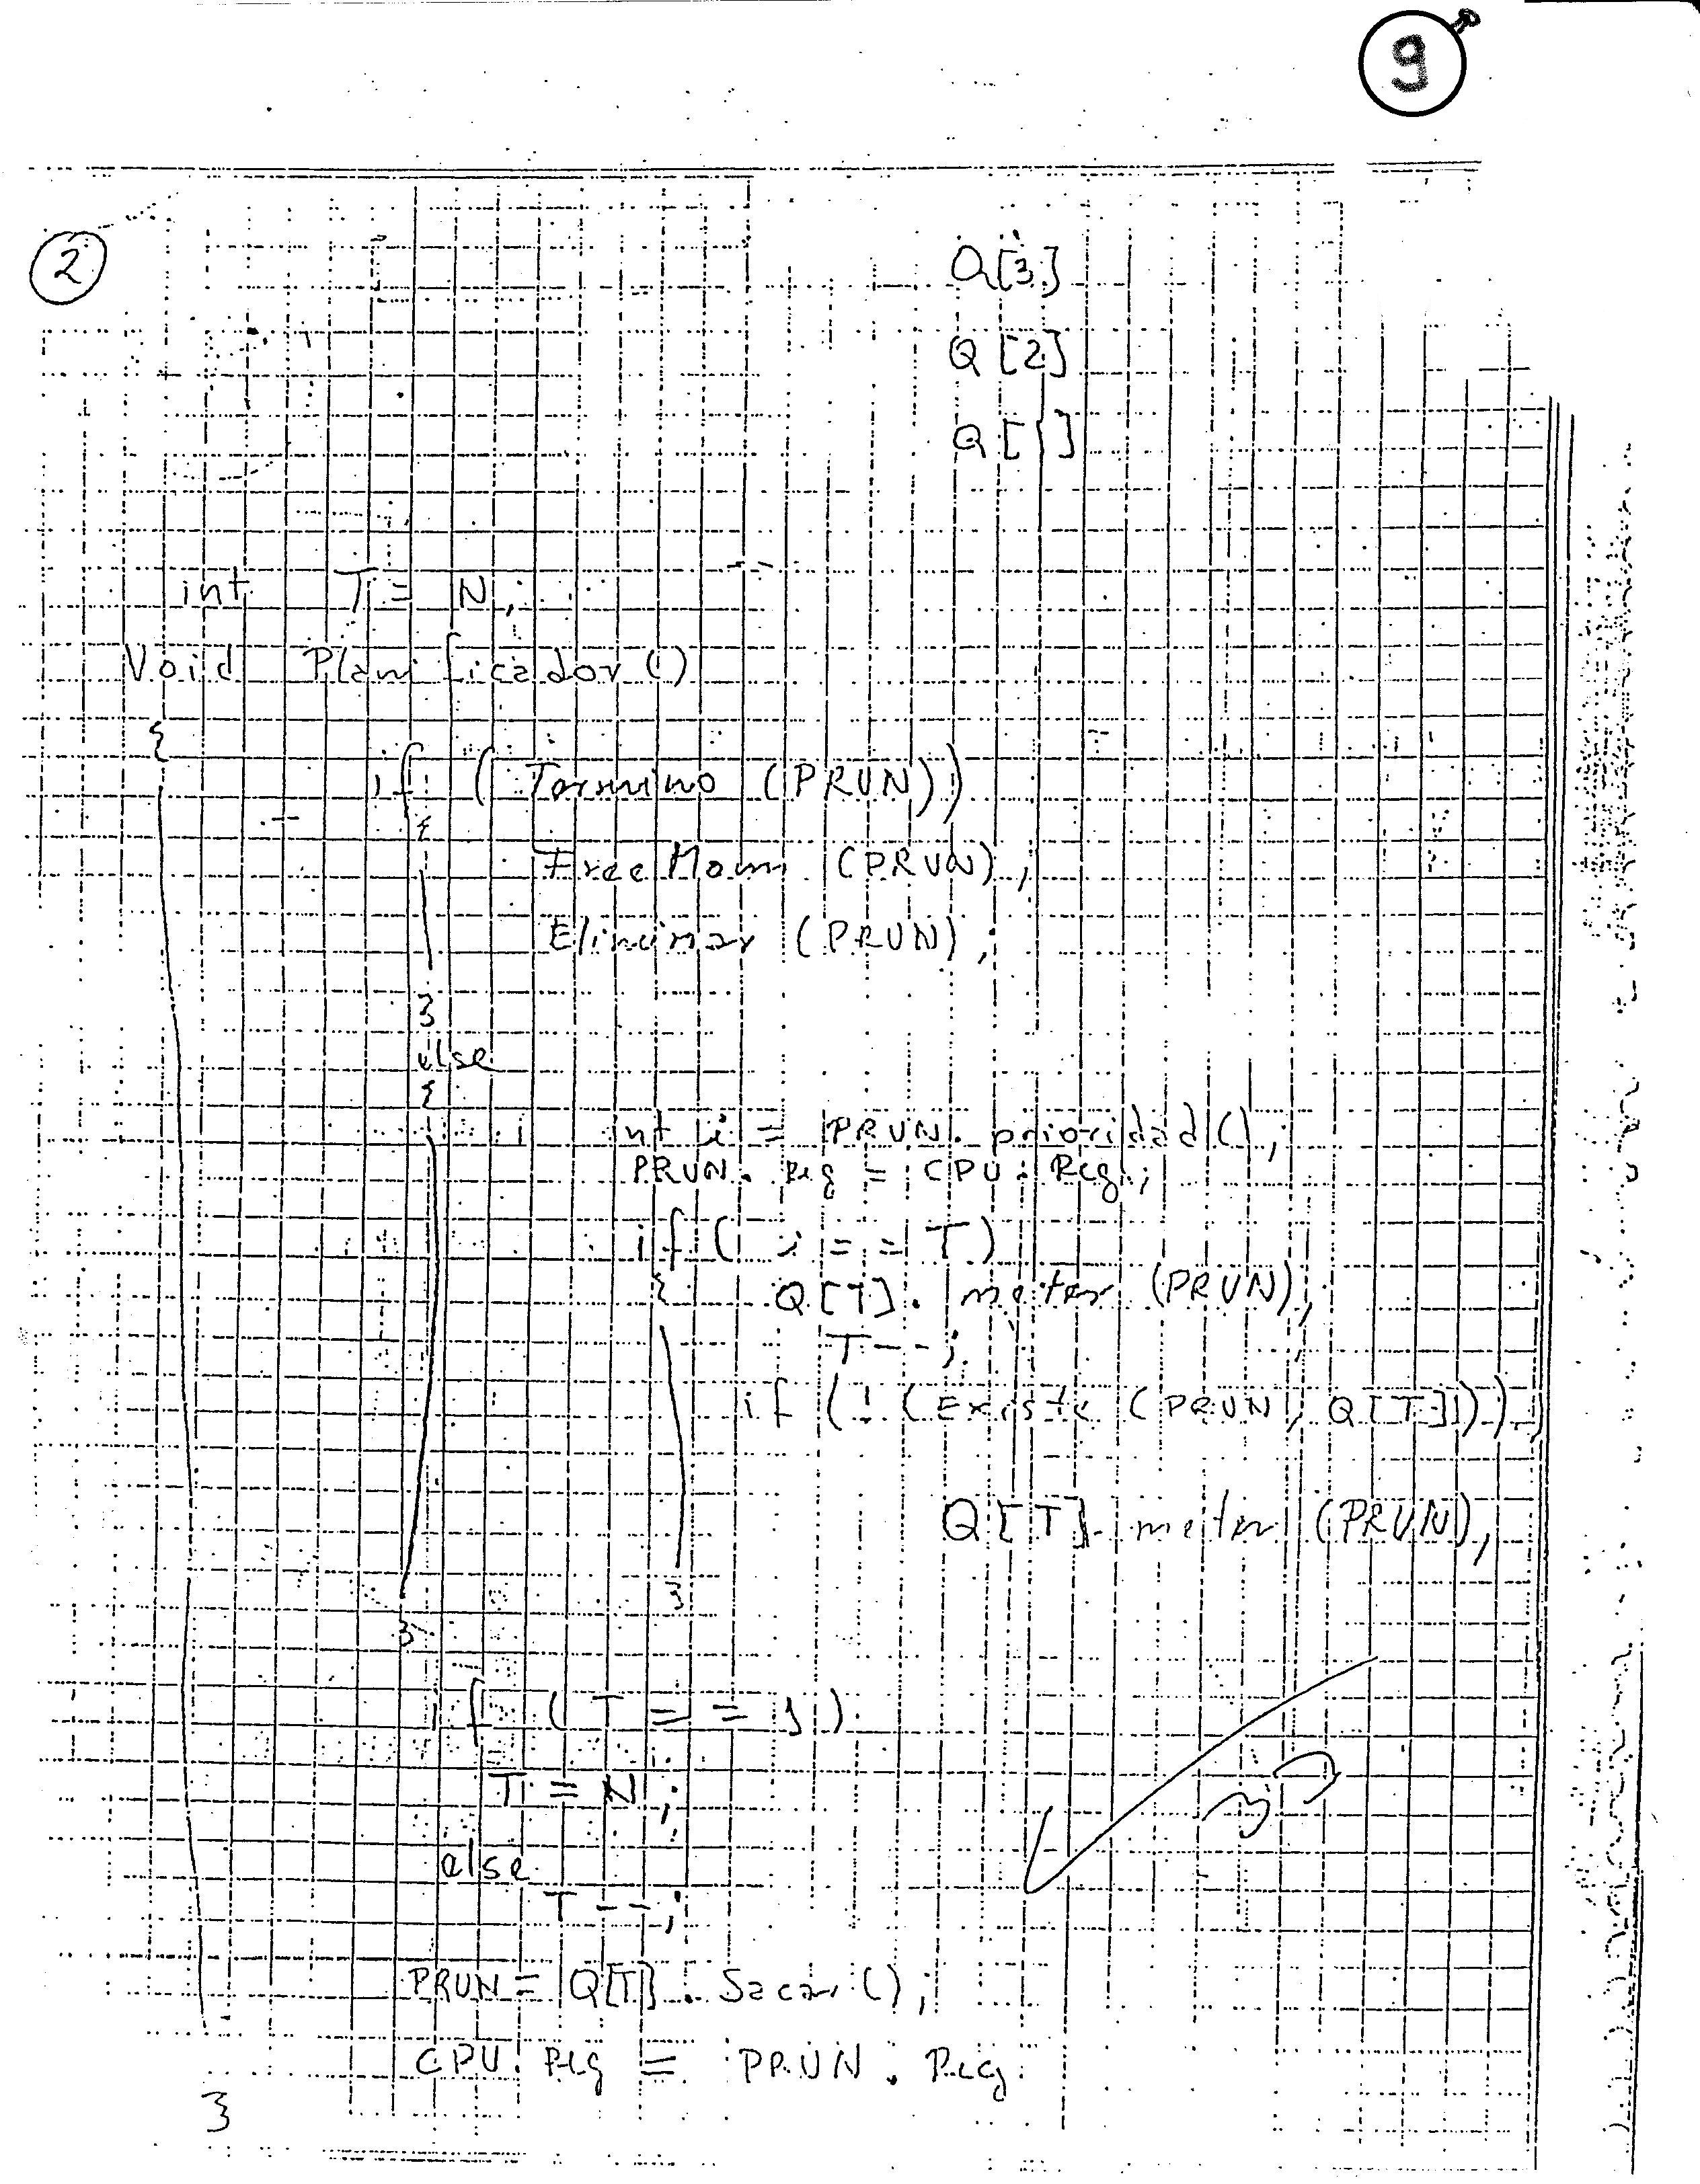 9
2
Q[3]
Q[2]
Q[1]
int T = N;
Void Planificador()
{
if (Termino (PRUN))
{
FreeMem (PRUN);
Eliminar (PRUN);
}
else
{
int i = PRUN.prioridad();
PRUN.Reg = CPU.Reg;
if ( i == T)
{ Q[T].meter (PRUN);
T--;
if (!(Existe (PRUN, Q[T])))
Q[T].meter (PRUN);
}
}
if (T == 1)
T = N;
else
T--;
PRUN = Q[T].Sacar();
CPU.Reg = PRUN.Reg
}